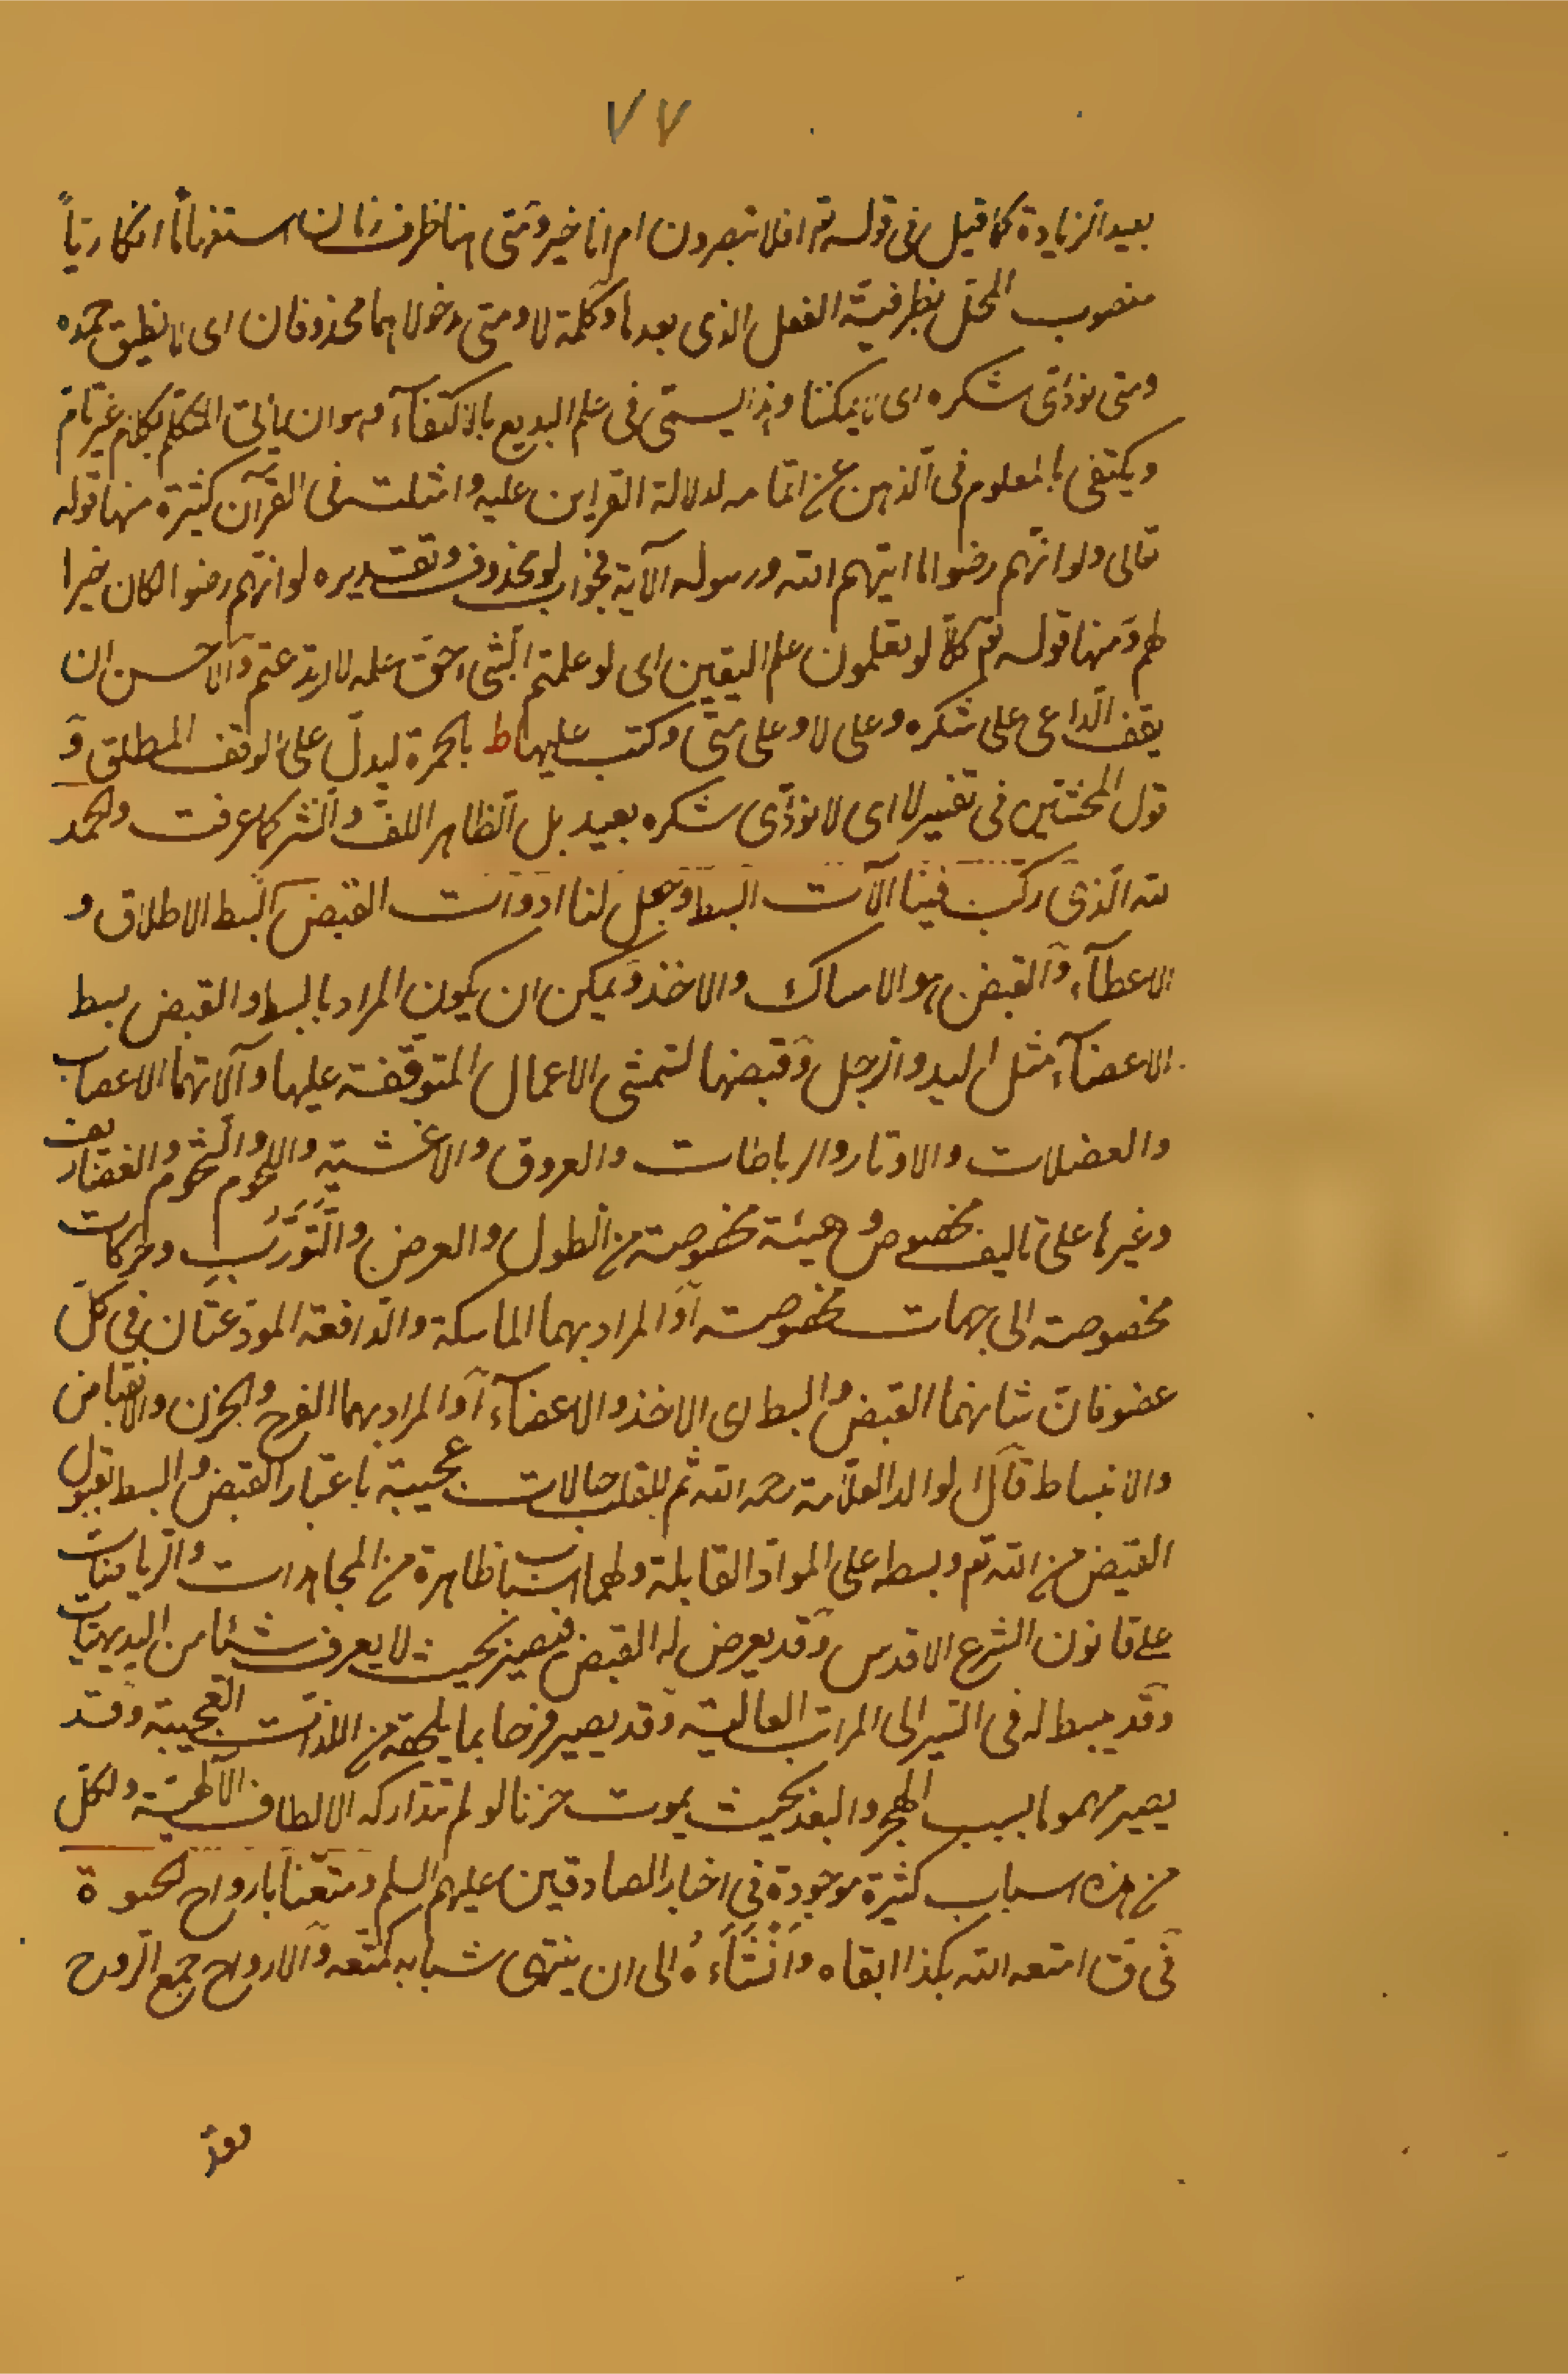 ٧٧
بعيد الزيادة كما قيل فى قوله تم افلا تبصرون ام انا خير ومتى هنا ظرف زمان استفهاما انكاريّاً
منصوب المحل بظرفيّة الفعل الذى بعدها وكلمة لا ومتى مدخولاهما محذوفان اى لا نطيق حمده
ومتى نؤدّى شكره اى لا يمكننا وهذا يسمّى فى علم البديع بالاكتفآء وهو ان ياتى المتكلم بكلام غير تام
ويكتفى بالمعلوم فى الذهن عن اتمامه لدلالة القراين عليه وامثلته فى القرآن كثيرة منها قوله
تعالى ولو انهم رضوا ما اتيهم الله ورسوله الآية فجواب لو محذوف وتقديره لو انهم رضوا لكان خيرا
لهم ومنها قوله تم كلّا لو تعلمون علم اليقين اى لو علمتم الشىء حق علمه لارتدعتم والاحسن ان
يقف الداعى على شكره وعلى لا وعلى متى وكتب عليها ط بالحمرة ليدلّ على الوقف المطلق و
قول المحشّين فى تفسير لا اى لا نؤدّى شكره بعيد بل الظاهر اللف والنشر كما عرفت والحمد
لله الّذى ركّب فينا آلات البسط وجعل لنا ادوات القبض البسط الاطلاق و
الاعطآء والقبض هو الامساك والاخذ ويمكن ان يكون المراد بالبسط والقبض بسط
الاعضآء مثل اليد والرجل وقبضهما لتمشى الاعمال المتوقّفة عليها وآلاتهما الاعصاب
والعضلات والاوتار والرباطات والعروق والاغشية واللحوم والشحوم والغضاريف
وغيرها على تاليف مخصوص وهيئة مخصوصة من الطول والعرض والتَّوَرُّب وحركات
مخصوصة الى جهات مخصوصة أو المراد بهما الماسكة والدافعة المودعتان فى كلّ
عضو فان شانهما القبض والبسط اى الاخذ والاعضآء أو المراد بهما الفرح والحزن والانقباض
والانبساط قال الوالد العلّامة رحمه الله ثم للقلب حالات عجيبة باعتبار القبض والبسط بقبول
الفيض من الله تم وبسطه على الموادّ القابلة ولهما اسباب ظاهرة من المجاهدات والرياضات
على قانون الشرع الاقدس وقد يعرض له القبض فيصير بحيث لا يعرف شيئا من البديهيّات
وقد يبسط له فى السّير الى المراتب العالية وقد يصير فرحا بما يلحقه من اللذات العجيبة وقد
يصير مهموما بسبب الهجر والبعد بحيث يموت حزنا لو لم تتداركه الالطاف الآلهيّة ولكلّ
من هذه اسباب كثيرة موجودة فى اخبار الصادقين عليهم السلم ومتّعنا بارواح الحيوة
فى ق امتعه الله بكذا ابقاه وَأَنْشَأَهُ الى ان ينتهى شبابه كمتّعه والارواح جمع الرّوح